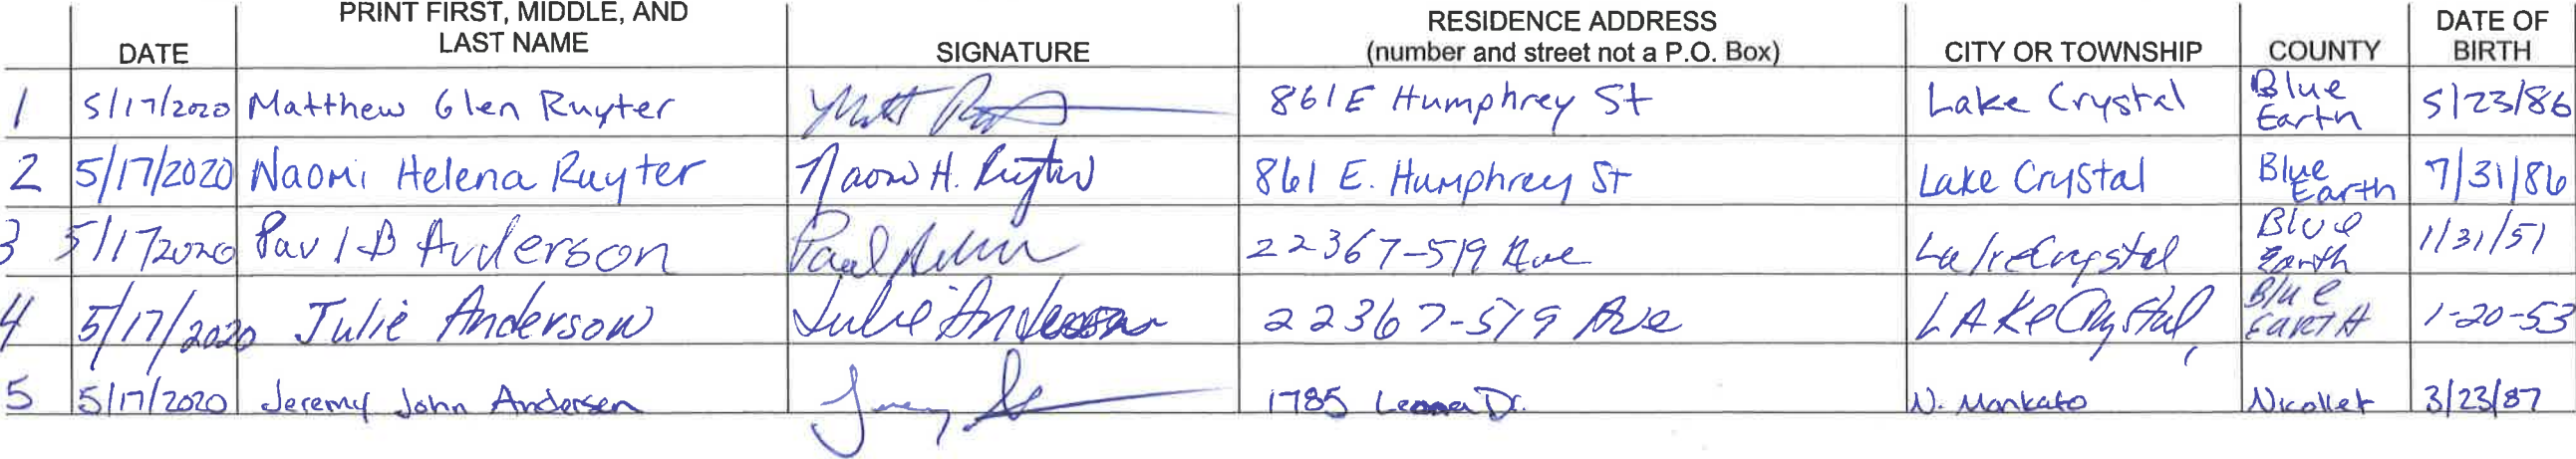 DATE PRINT FIRST, MIDDLE, AND LAST NAME SIGNATURE RESIDENCE ADDRESS (number and street not a P.O. Box) CITY OR TOWNSHIP COUNTY DATE OF BIRTH
1 5/17/2020 Matthew Glen Ruyter Matt 861 E Humphrey St Lake Crystal Blue Earth 5/23/86
2 5/17/2020 Naomi Helena Ruyter Naomi H. Ruyter 861 E. Humphrey St Lake Crystal Blue Earth 7/31/86
3 5/17/2020 Paul B Anderson Paul 22367-519 Ave Lake Crystal Blue Earth 1/31/51
4 5/17/2020 Julie Anderson Julie Anderson 22367-519 Ave LAKe Crystal, Blue EARTH 1-20-53
5 5/17/2020 Jeremy John Andersen 1785 Dr. N. Mankato Nicollet 3/23/87